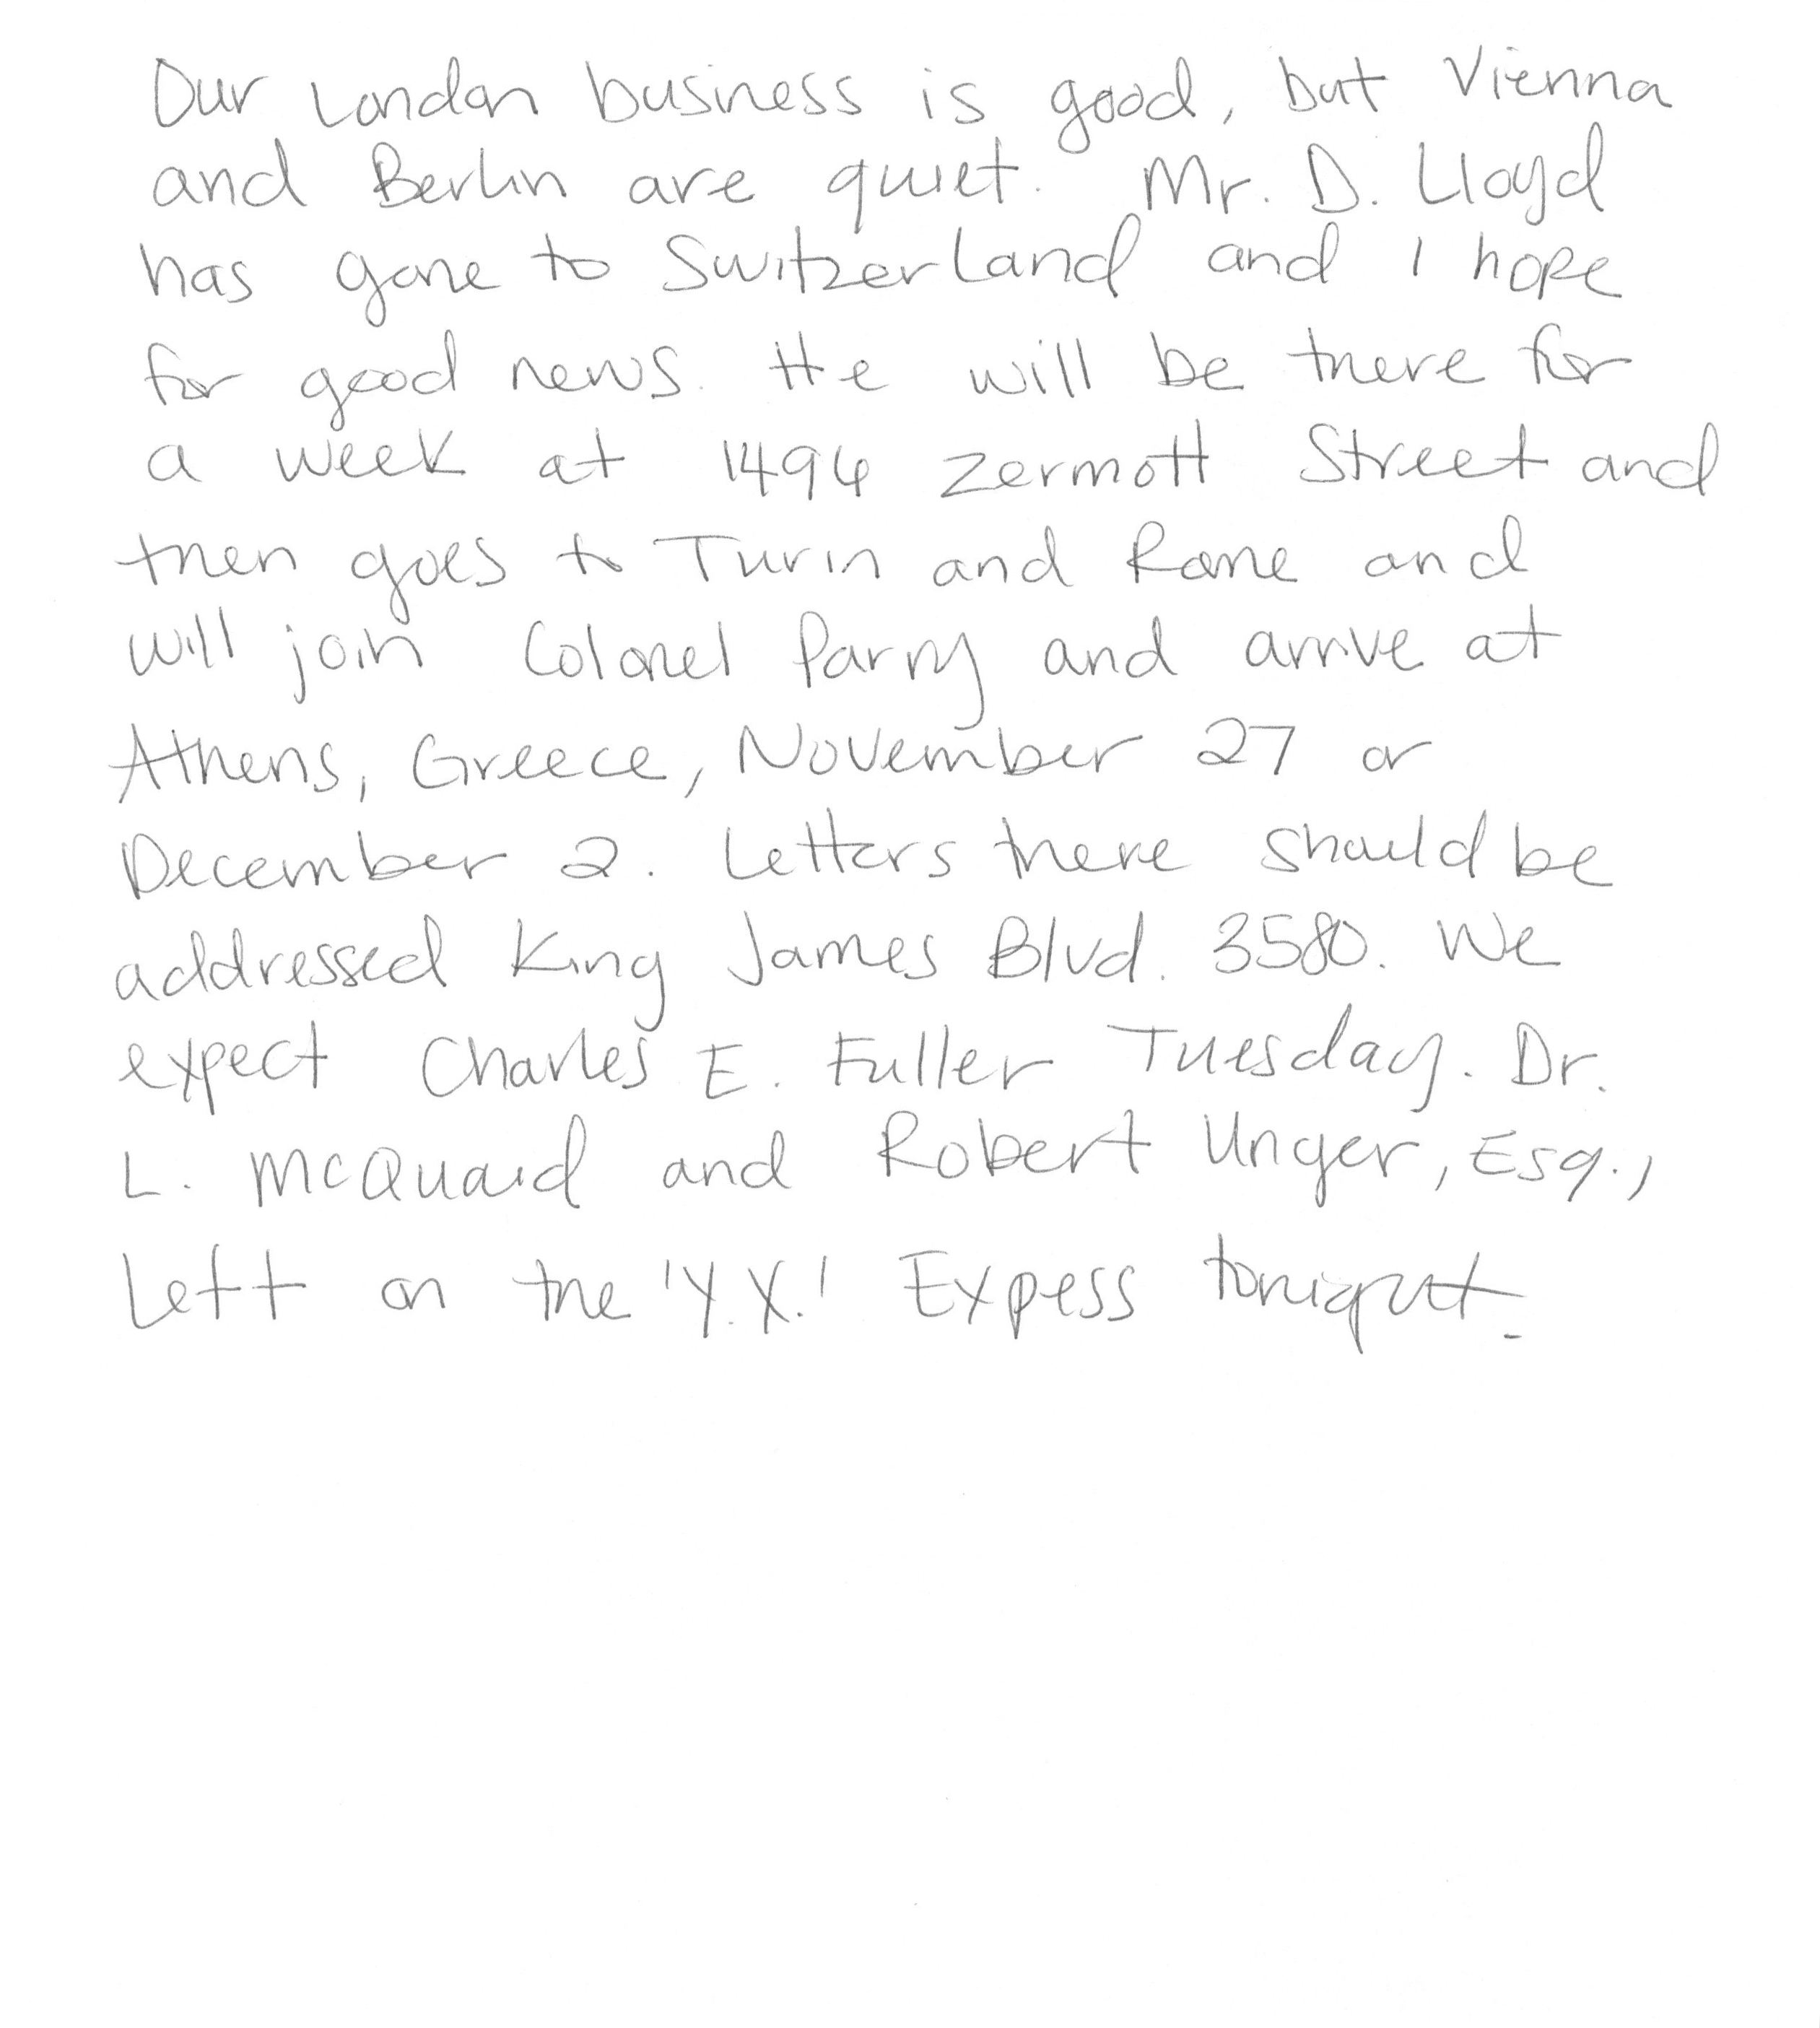 Our London business is good, but Vienna
and Berlin are quiet. Mr. D. Lloyd
has gone to Switzerland and I hope
for good news. He will be there for
a week at 1496 Zermott Street and
then goes to Turin and Rome and
will join Colonel Parry and arrive at
Athens, Greece, November 27 or
December 2. Letters there should be
addressed King James Blvd. 3580. We
expect Charles E. Fuller Tuesday. Dr.
L. McQuaid and Robert Unger, Esq.,
left on the 'Y.X.' Expess tonight.